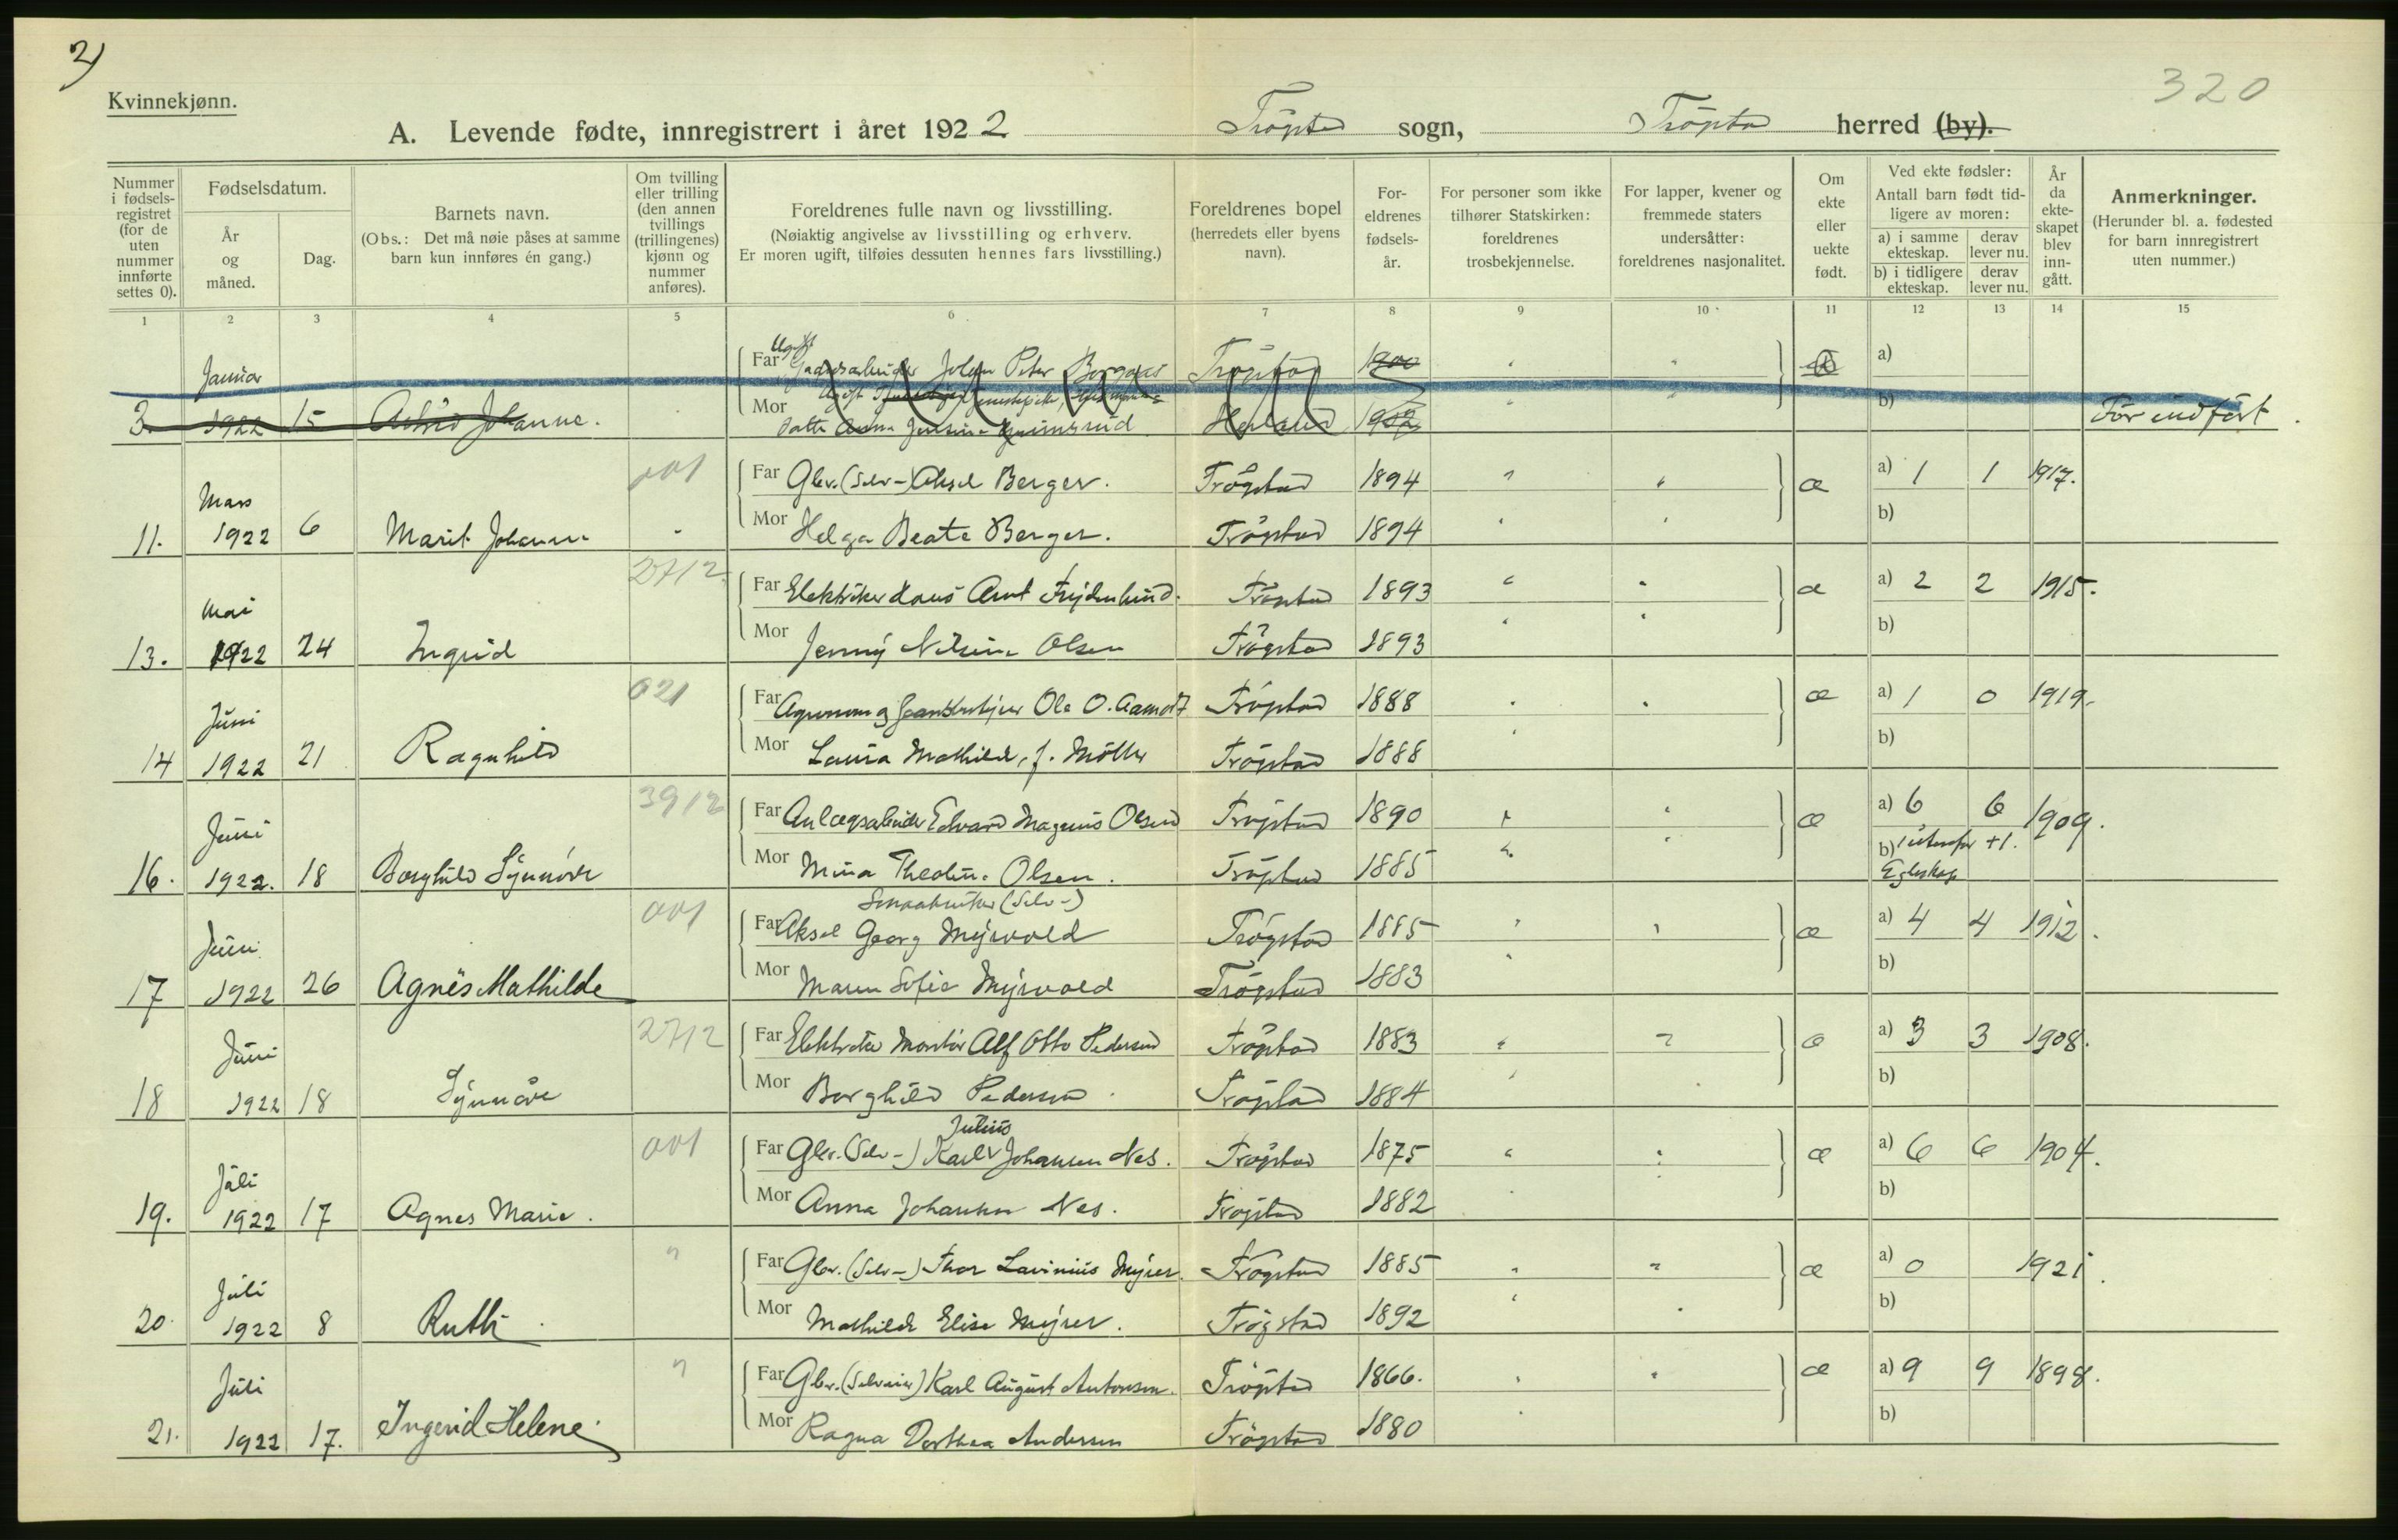 2)
320
Kvinnekjønn.
A. Levende fødte, innregistrert i året 1922 Trögstad sogn, Trögstad herred (by).
Nummer i fødsels-registret (for de uten nummer innførte settes 0).
Fødselsdatum.
År og måned.
Dag.
Barnets navn.
(Obs.: Det må nøie påses at samme barn kun innføres én gang.)
Om tvilling eller trilling (den annen tvillings (trillingenes) kjønn og nummer anføres).
Foreldrenes fulle navn og livsstilling.
(Nøiaktig angivelse av livsstilling og erhverv.
Er moren ugift, tilføies dessuten hennes fars livsstilling.)
Foreldrenes bopel (herredets eller byens navn).
For-eldrenes fødsels-år.
For personer som ikke tilhører Statskirken: foreldrenes trosbekjennelse.
For lapper, kvener og fremmede staters undersåtter: foreldrenes nasjonalitet.
Om ekte eller uekte født.
Ved ekte fødsler:
Antall barn født tid-ligere av moren:
a) i samme ekteskap.
derav lever nu.
b) i tidligere ekteskap.
derav lever nu.
År da ekte-skapet blev inn-gått.
Anmerkninger.
(Herunder bl. a. fødested for barn innregistrert uten nummer.)
1 2 3 4 5 6 7 8 9 10 11 12 13 14 15
Januar
Ugift
Far Gaardsarbeider Johan Peter Trögstad 1900 a)
Mor Ugift
3. 1922 15 Astrid Johanne. datter Anna Jensine 1902 b) Før indført.
001
Mars
Far Gbr. (Selv-) Aksel Berger. Trögstad 1894 æ a) 1 1 1917.
11. 1922 6 Marit Johanne Mor Helga Beate Berger. Trögstad 1894 b)
2712
Mai
Far Elektriker Hans Arnt Frydenlund. Trögstad 1893 æ a) 2 2 1915.
13. 1922 24 Ingrid Mor Jenny Nilsine Olsen Trögstad 1893 b)
021
Juni
Far Agronom og Ole O. Aamodt Trögstad 1888 æ a) 1 0 1919.
14 1922 21 Ragnhild Mor Laura Mathilde, f. Möller Trögstad 1888 b)
3912
Juni
Far Anlægsarbeider Edvard Magnus Olsen Trögstad 1890 æ a) 6 6 1909.
16. 1922. 18 Borghild Synnöve Mor Mina Theoline Olsen. Trögstad 1885 b) 1 utenfor +1.
Egteskap
001
Smaabruker (Selv-)
Juni
Far Aksel Georg Myrvold Trögstad 1885 æ a) 4 4 1912.
17 1922 26 Agnes Mathilde Mor Maren Sofie Myrvold Trögstad 1883 b)
2712
Juni
Far Montör Alf Otto Pedersen Trögstad 1883 æ a) 3 3 1908.
18 1922 18 Synnöve Mor Borghild Pedersen. Trögstad 1884 b)
001
Julius
Juli
Far Gbr. (Selv-) Karl Johansen Nes. Trögstad 1875 æ a) 6 6 1904.
19. 1922 17 Agnes Marie. Mor Anna Johansen Nes. Trögstad 1882 b)
"
Juli
Far Gbr. (Selv-) Thor Lavinius Myrer. Trögstad 1885 æ a) 0 1921.
20. 1922 8 Ruth. Mor Mathilde Elise Myrer. Trögstad 1892 b)
"
Juli
Far Gbr. (Selveier) Karl August Antonsen. Trögstad 1866. æ a) 9 9 1898.
21. 1922 17. Ingerid Helene. Mor Ragna Dorthea Andersen Trögstad 1880 b)